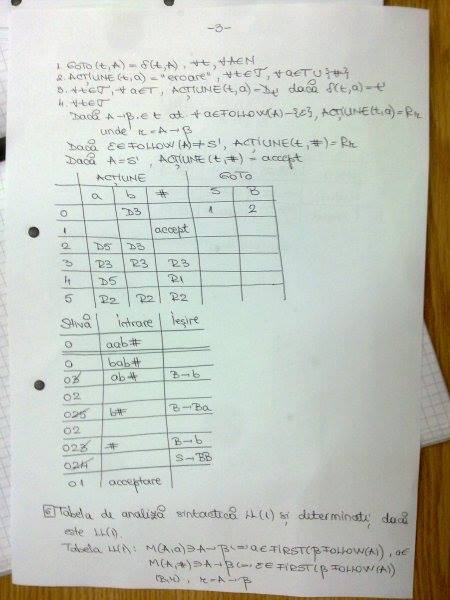 -3-
1. GOTO(t,A) = δ(t,A), ∀t, ∀A∈N
2. ACȚIUNE(t,a) = "eroare", ∀t∈T, ∀a∈T∪{#}
3. ∀t∈T, ∀a∈T, ACȚIUNE(t,a) = Dt' dacă δ(t,a)=t'
4. ∀t∈T
Dacă A→β.∈t at ∀a∈FOLLOW(A)-{ε}, ACȚIUNE(t,a)=Rr
unde r=A→β
Dacă ε∈FOLLOW(A)≠S', ACȚIUNE(t,#)=Rr
Dacă A=S', ACȚIUNE(t,#)=accept
ACȚIUNE GOTO
a b # S B
0 D3 1 2
1 accept
2 D5 D3
3 R3 R3 R3
4 D5 R1
5 R2 R2 R2
Stivă Intrare Ieșire
0 aab#
0 bab#
03 ab# B→b
02
025 b# B→Ba
02
023 # B→b
024 S→BB
01 acceptare
Tabela de analiză sintactică LL(1) și determinați dacă
este LL(1).
Tabela LL(1): M(A,a)∋A→β ⇔ a∈FIRST(βFOLLOW(A)), a∈
M(A,#)∋A→β ⇔ ε∈FIRST(βFOLLOW(A))
r=A→β